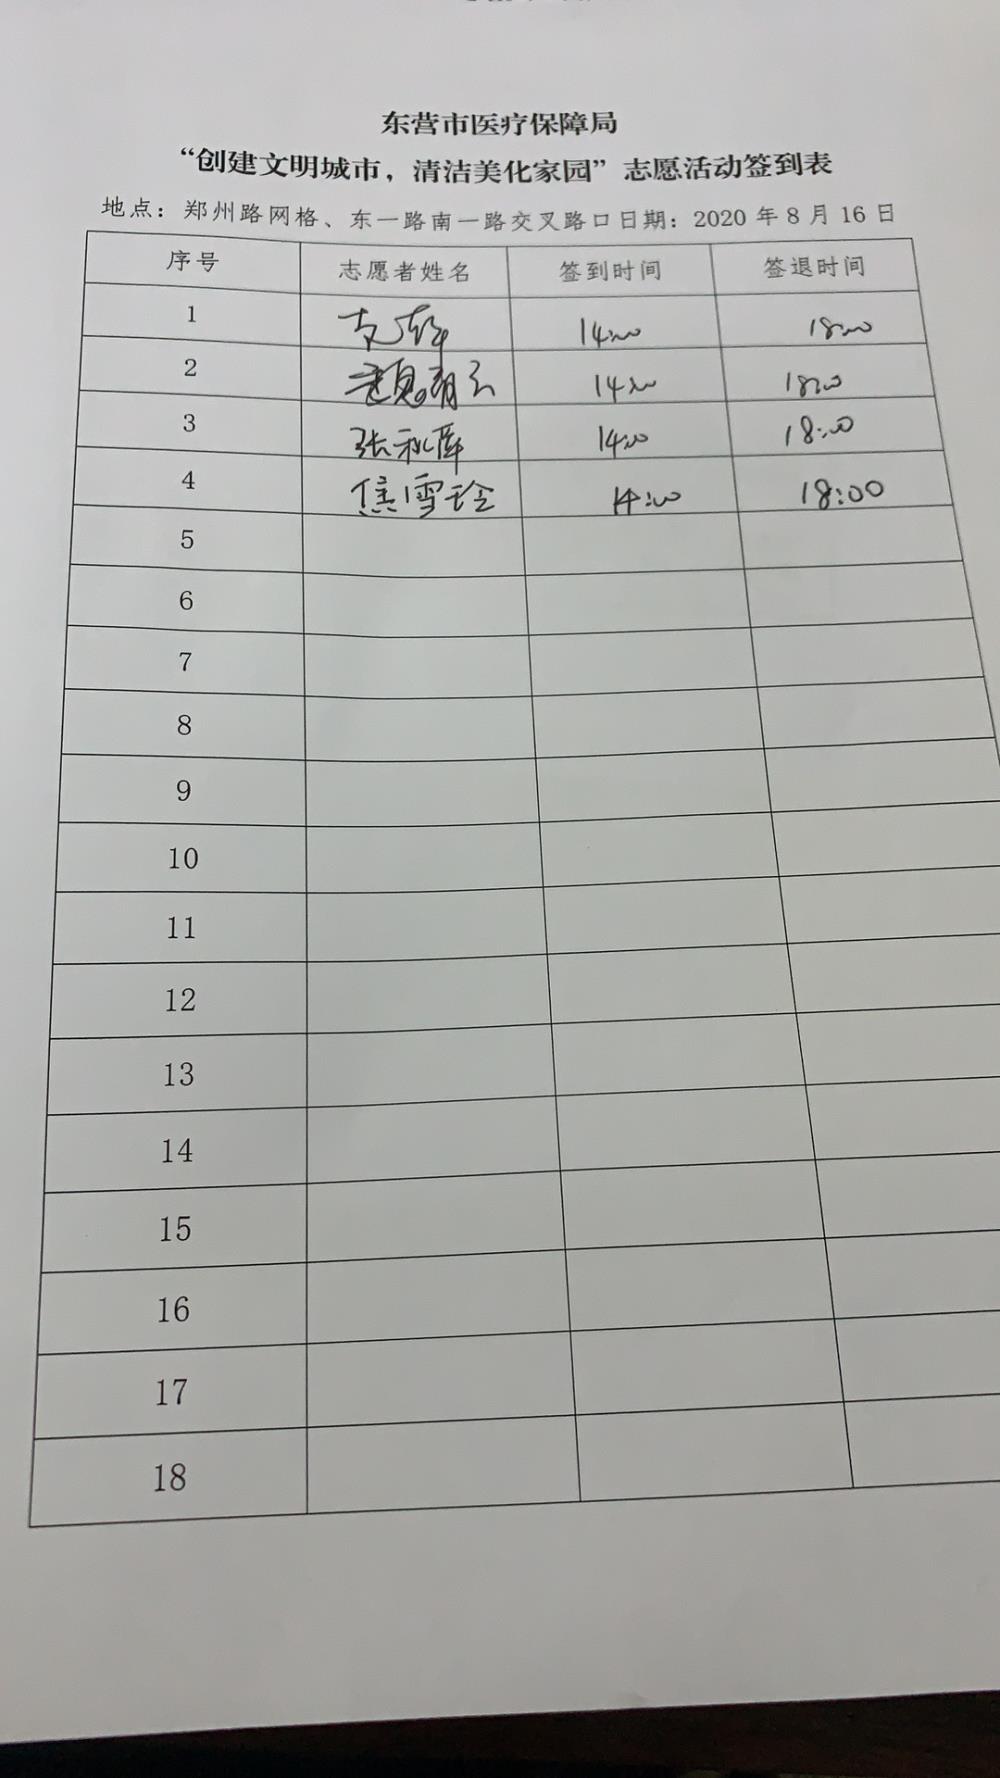 东营市医疗保障局
“创建文明城市，清洁美化家园”志愿活动签到表
地点：郑州路网格、东一路南一路交叉路口日期：2020 年 8 月 16 日
序号 志愿者姓名 签到时间 签退时间
1 14:00 18:00
2 14:00 18:00
3 张秋萍 14:00 18:00
4 焦雪玲 14:00 18:00
5
6
7
8
9
10
11
12
13
14
15
16
17
18